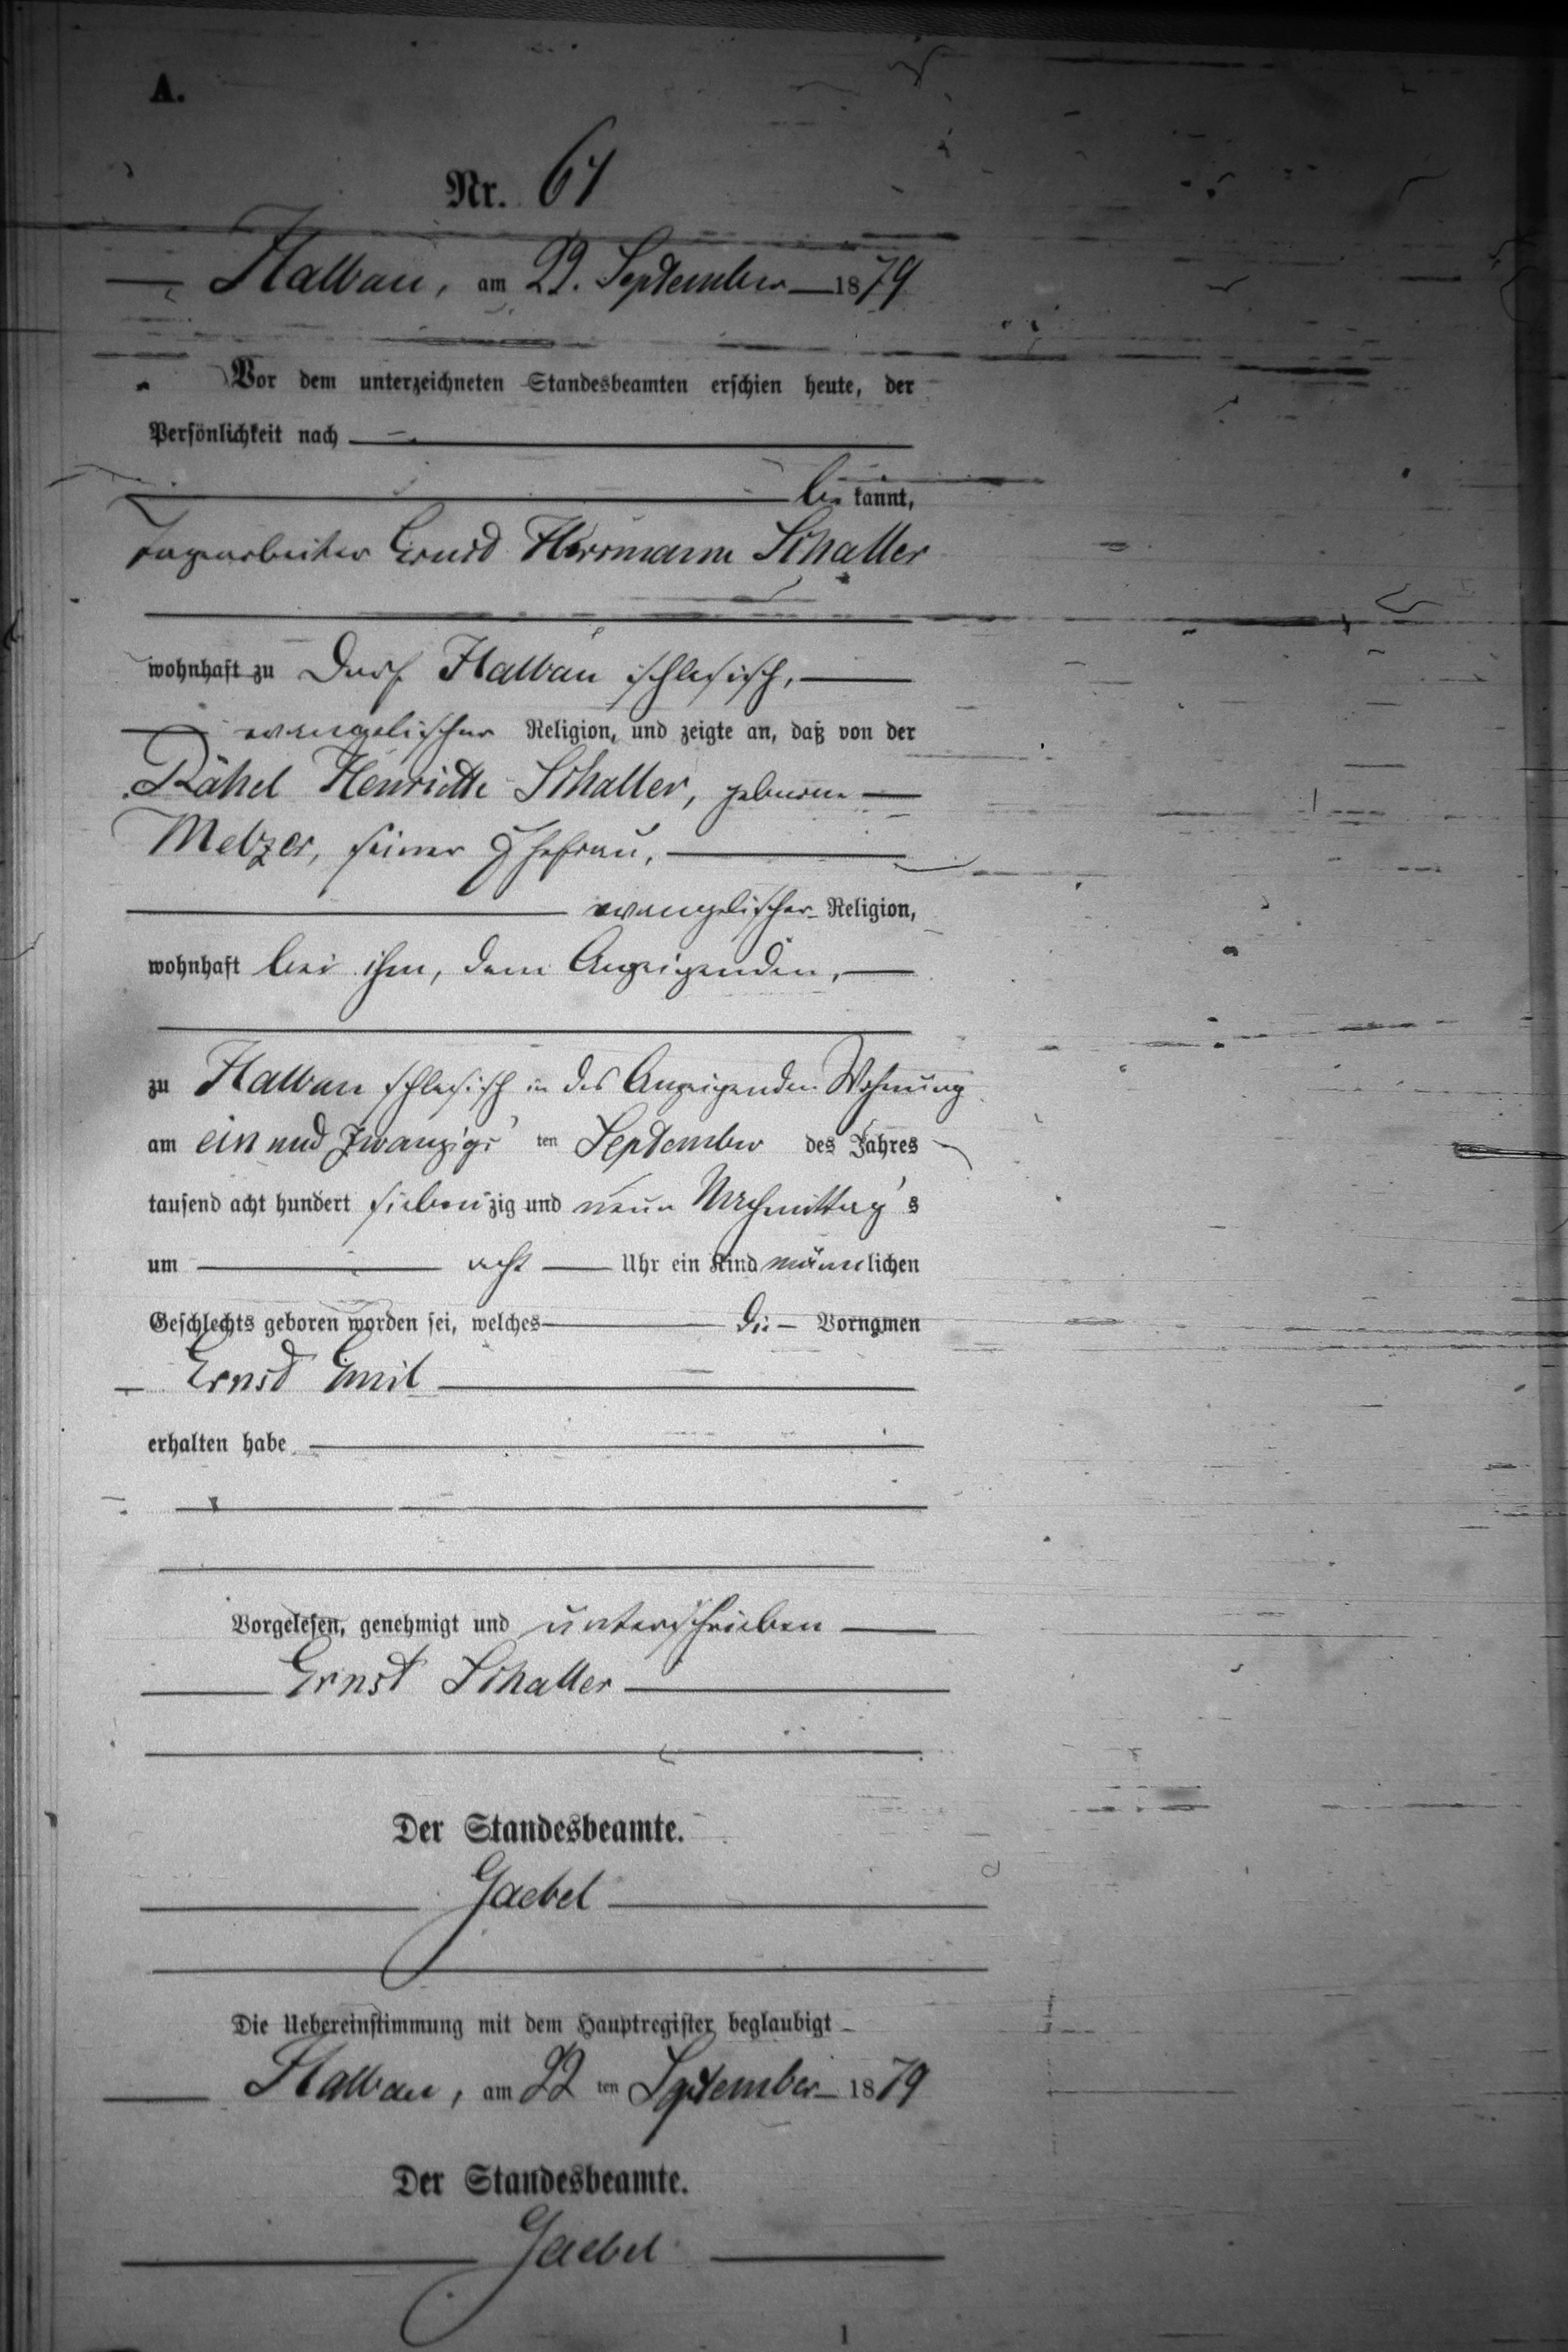 A.
Nr. 61
Halbau, am 22. September 1879
Vor dem unterzeichneten Standesbeamten erschien heute, der
Persönlichkeit nach
be kannt,
Tagearbeiter Ernst Herrmann Schaller
wohnhaft zu Dorf Halbau schlesisch,
evangelischer Religion, und zeigte an, daß von der
Rahel Henriette Schaller, geborene
Melzer, seiner Ehefrau,
evangelischer Religion,
wohnhaft bei ihm, dem Anzeigenden,
zu Halbau schlesisch in des Anzeigenden Wohnung
am ein und zwanzigs ten September des Jahres
tausend acht hundert sieben zig und neun Nachmittag s
um acht Uhr ein Kind männ lichen
Geschlechts geboren worden sei, welches die Vornamen
Ernst Emil
erhalten habe
Vorgelesen, genehmigt und unterschrieben
Ernst Schaller
Der Standesbeamte.
Gaebel
Die Uebereinstimmung mit dem Hauptregister beglaubigt
Halbau, am 22 ten September 1879
Der Standesbeamte.
Gaebel